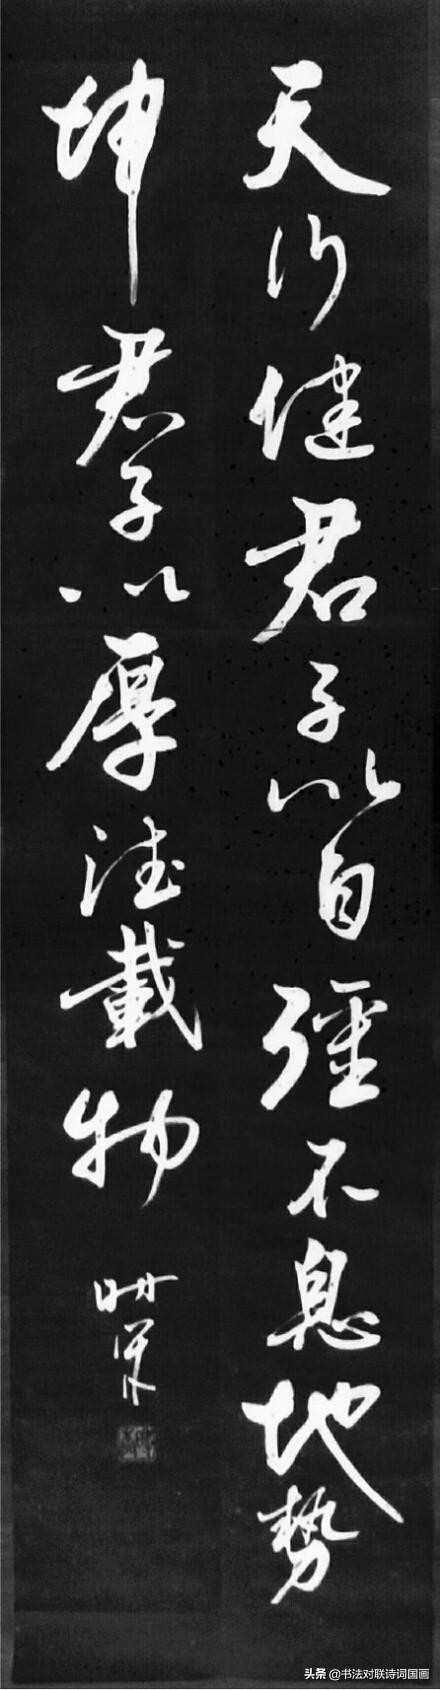 天行健君子以自彊不息地势
坤君子以厚德載物
头条 @书法对联诗词国画